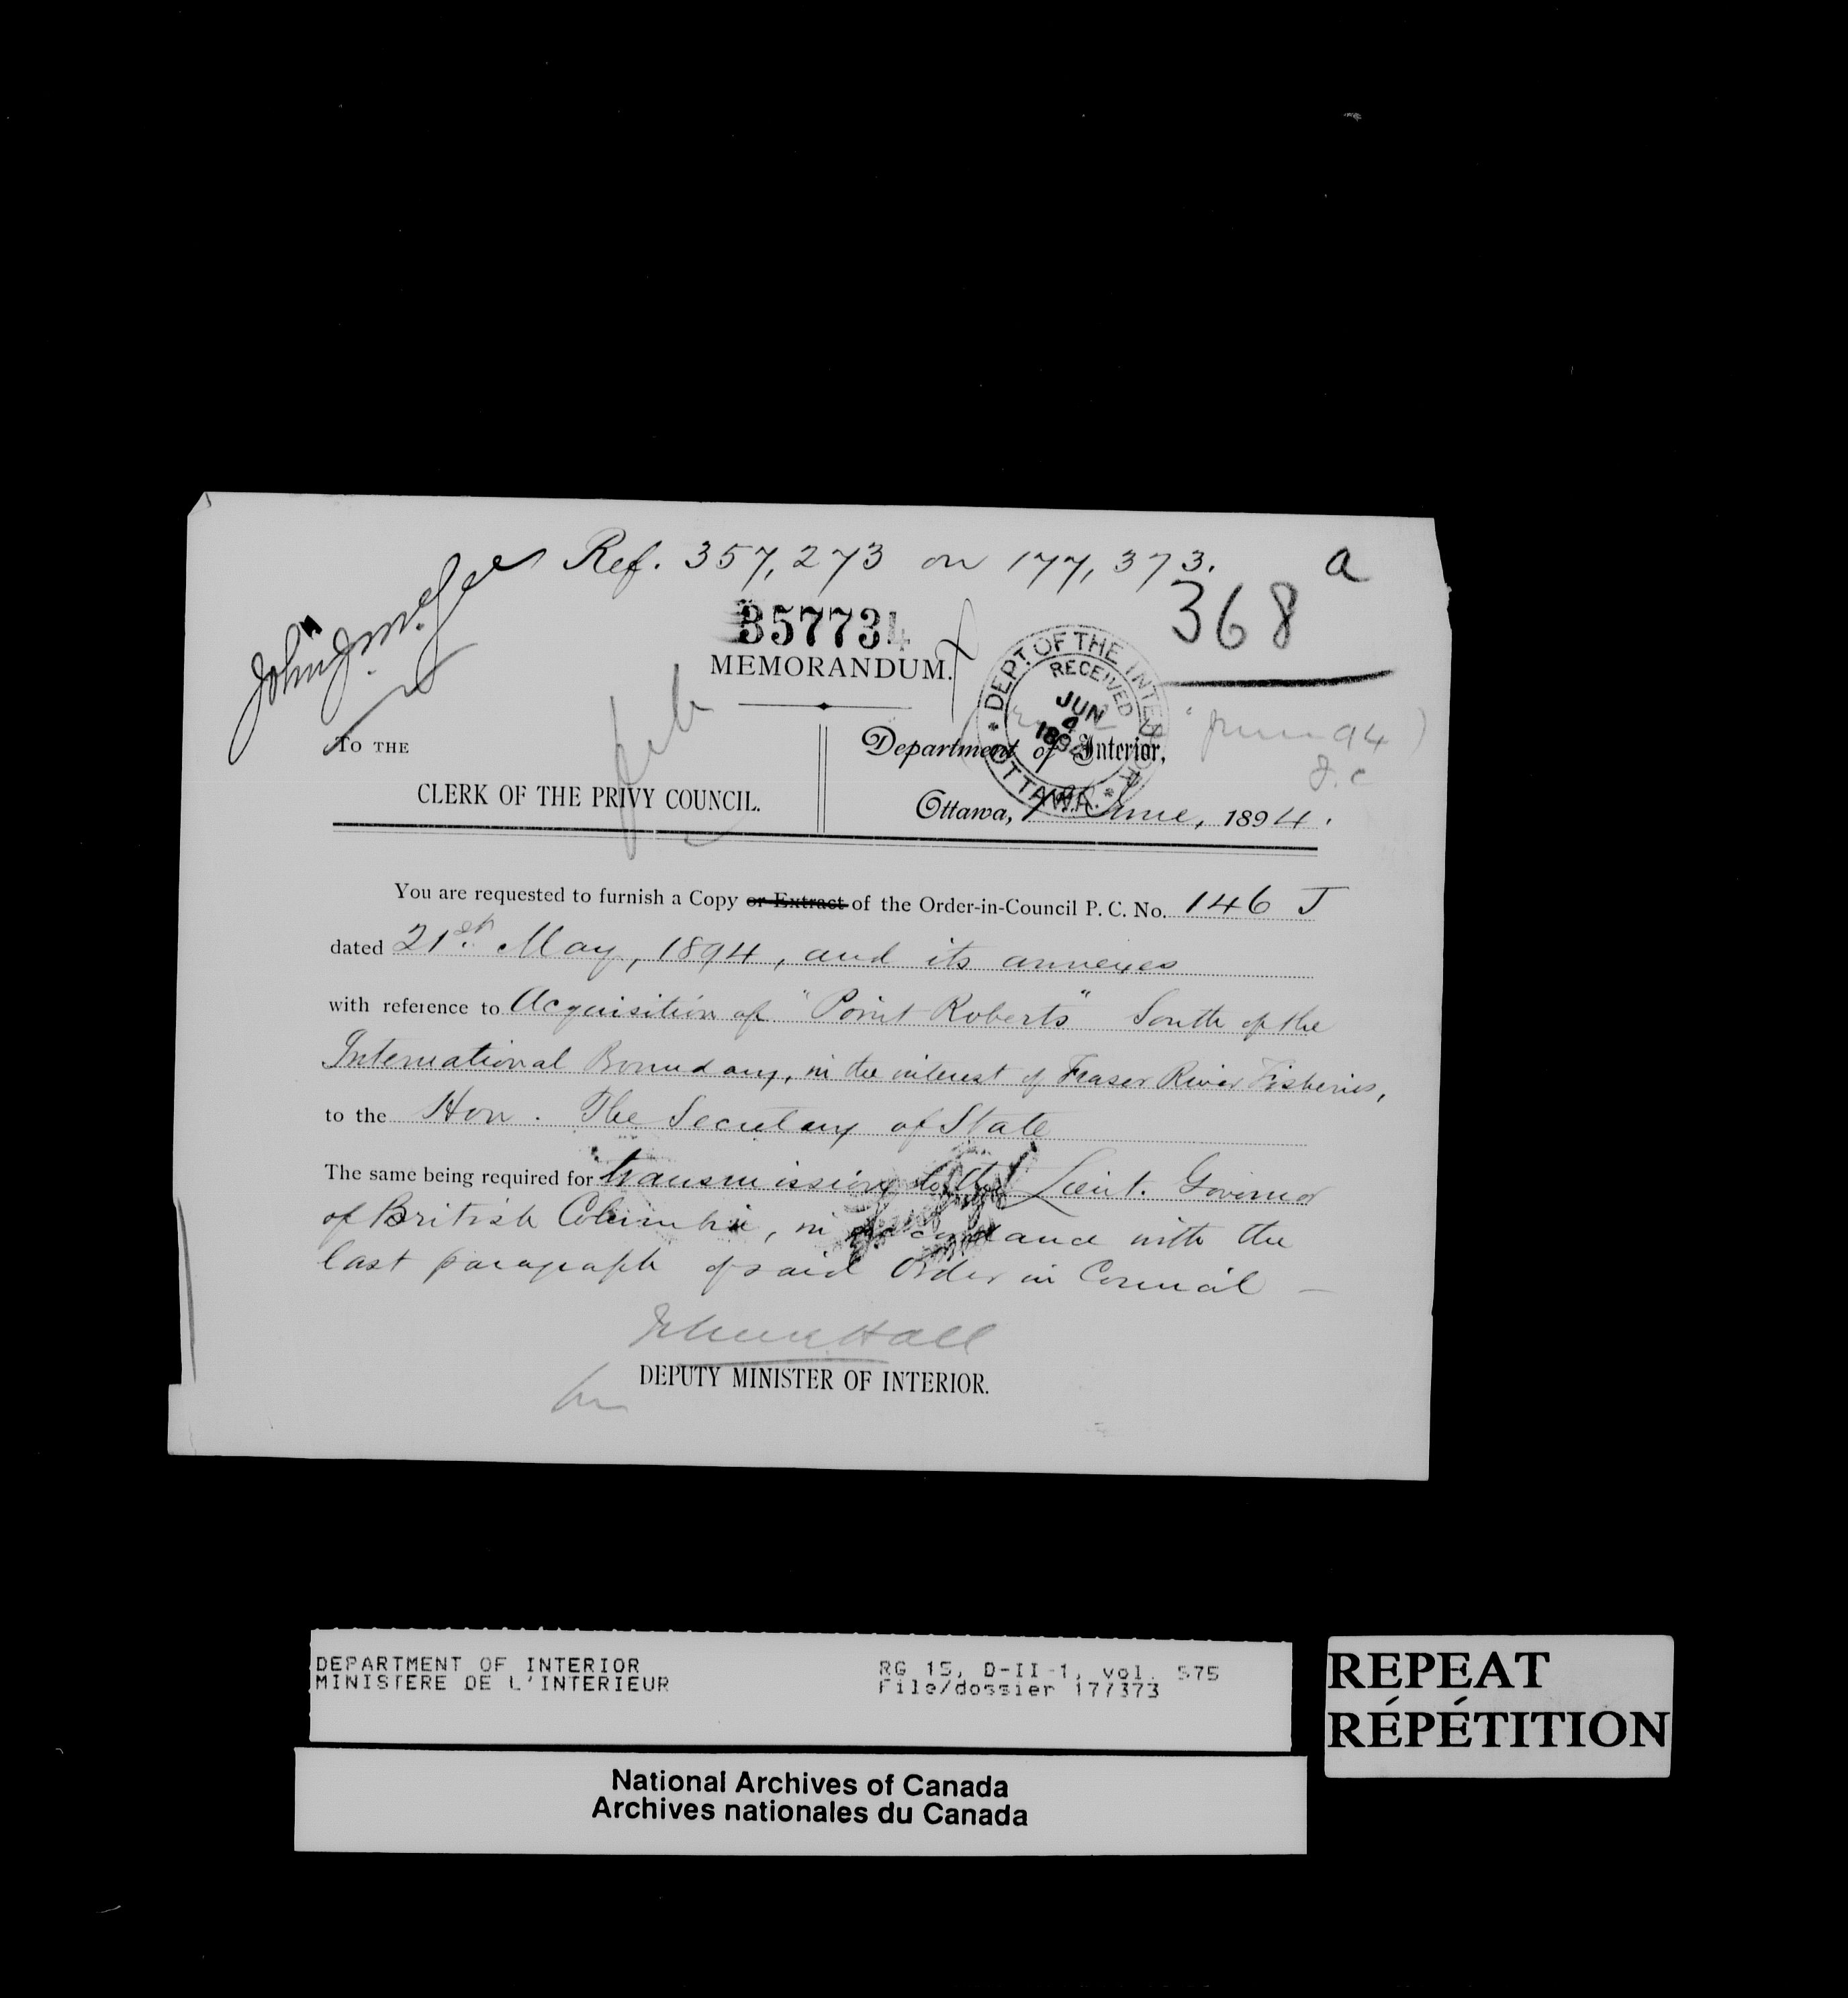 Ref. 357,273 on 177,373. a
John J. McGee
368
357734
MEMORANDUM.
DEPT. OF THE INTERIOR
RECEIVED
JUN 4 1894
OTTAWA.
TO THE
CLERK OF THE PRIVY COUNCIL.
Department of Interior,
June 94
J.C
Ottawa, 1st June, 1894.
You are requested to furnish a Copy or Extract of the Order-in-Council P. C. No. 146 J
dated 21st. May, 1894, and its annexes
with reference to Acquisition of "Point Roberts" South of the
International Boundary, in the interest of Fraser River Fisheries,
to the Hon. The Secretary of State
The same being required for transmission to the Lieut. Governor
of British Columbia, in accordance with the
last paragraph of said Order in Council —
Hall
DEPUTY MINISTER OF INTERIOR.
DEPARTMENT OF INTERIOR
MINISTERE DE L'INTERIEUR
RG 15, D-II-1, vol. 575
File/dossier 177373
REPEAT
RÉPÉTITION
National Archives of Canada
Archives nationales du Canada